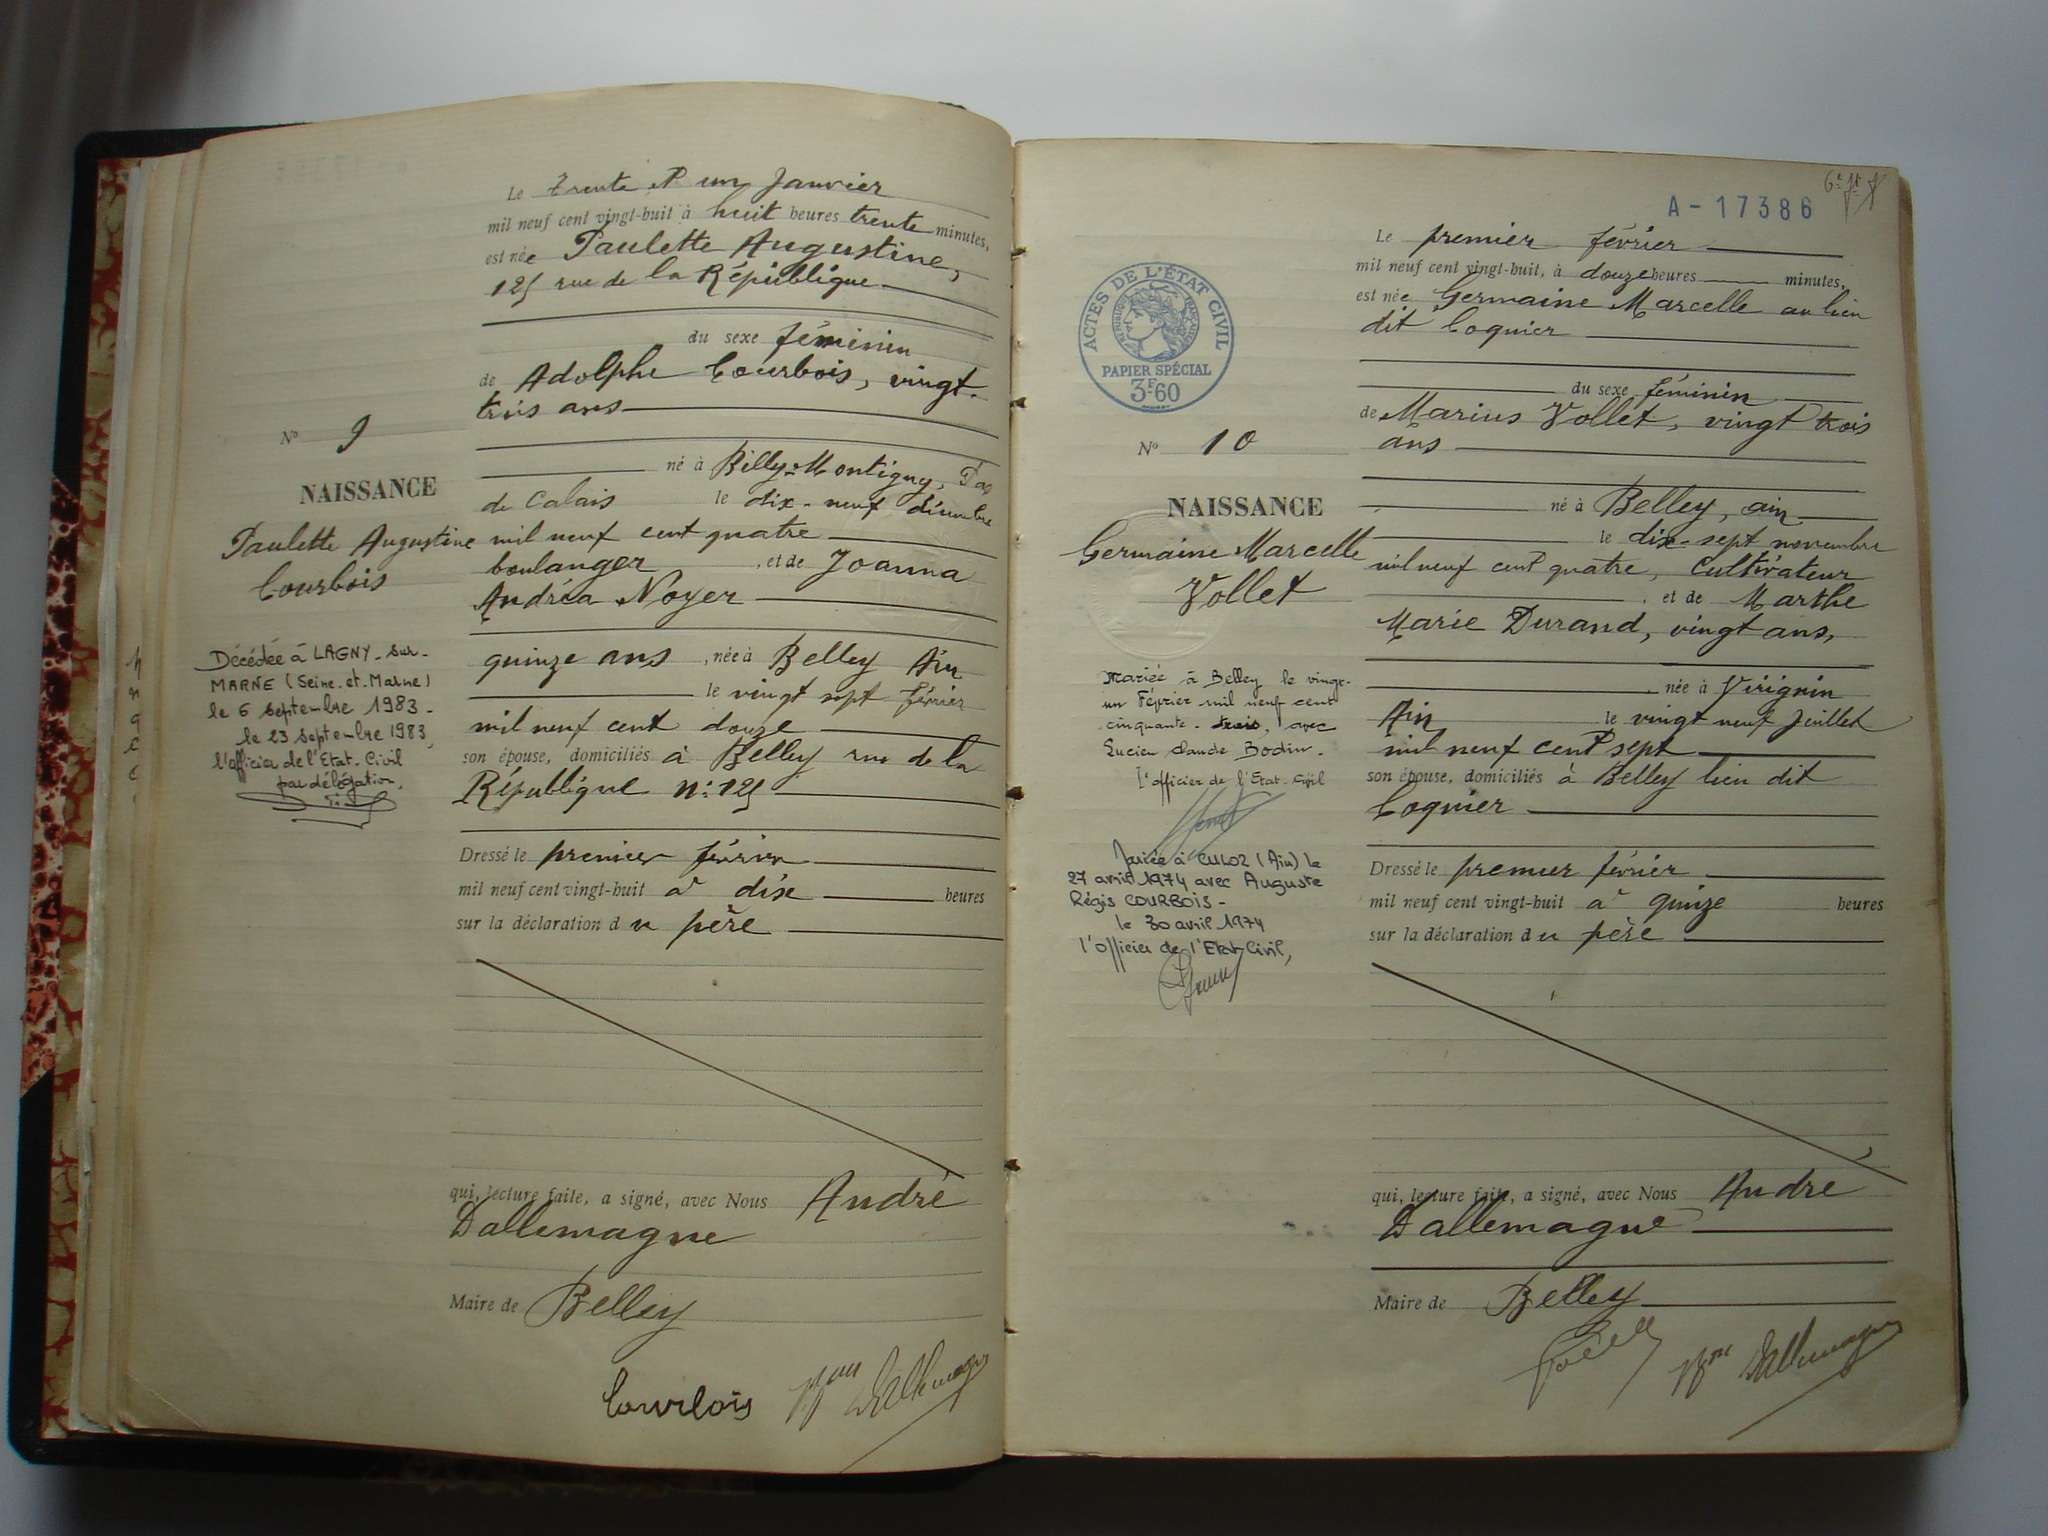 Le trente et un Janvier
mil neuf cent vingt-huit à huit heures trente minutes,
est née Paulette Augustine,
125 rue de la République
du sexe féminin
de Adolphe Courbois, vingt-
trois ans
N° 9
NAISSANCE
Paulette Augustine
Courbois
né à Billy-Montigny, Pas
de Calais le dix-neuf décembre
mil neuf cent quatre
boulanger, et de Joanna
Andréa Noyer
Décédée à LAGNY-sur-
MARNE (Seine-et-Marne)
le 6 septembre 1983-
le 23 septembre 1983,
l'officier de l'Etat-Civil
par délégation,
quinze ans, née à Belley Ain
le vingt sept février
mil neuf cent douze
son épouse, domiciliés à Belley rue de la
République n° 125
Dressé le premier février
mil neuf cent vingt-huit à dix heures
sur la déclaration du père
qui, lecture faite, a signé, avec Nous André
Dallemagne
Maire de Belley
Courbois Dallemagne
A-17386
Le premier février
mil neuf cent vingt-huit, à douze heures minutes,
est née Germaine Marcelle au lieu
dit Coquier
ACTES DE L'ÉTAT CIVIL
PAPIER SPÉCIAL
3F60
du sexe féminin
de Marius Vollet, vingt trois
ans
N° 10
NAISSANCE
Germaine Marcelle
Vollet
né à Belley, ain
le dix-sept novembre
mil neuf cent quatre, cultivateur
, et de Marthe
Marie Durand, vingt ans,
Mariée à Belley le vingt-
un Février mil neuf cent
cinquante-trois, avec
Lucien Claude Bodin-
l'officier de l'Etat-Civil
Mariée à CULOZ (Ain) le
27 avril 1974 avec Auguste
Régis COURBOIS-
le 30 avril 1974
l'Officier de l'Etat-Civil,
née à Virignin
Ain le vingt neuf Juillet
mil neuf cent sept
son épouse, domiciliés à Belley lieu dit
Coquier
Dressé le premier février
mil neuf cent vingt-huit à quinze heures
sur la déclaration du père
qui, lecture faite, a signé, avec Nous André
Dallemagne
Maire de Belley
Dallemagne